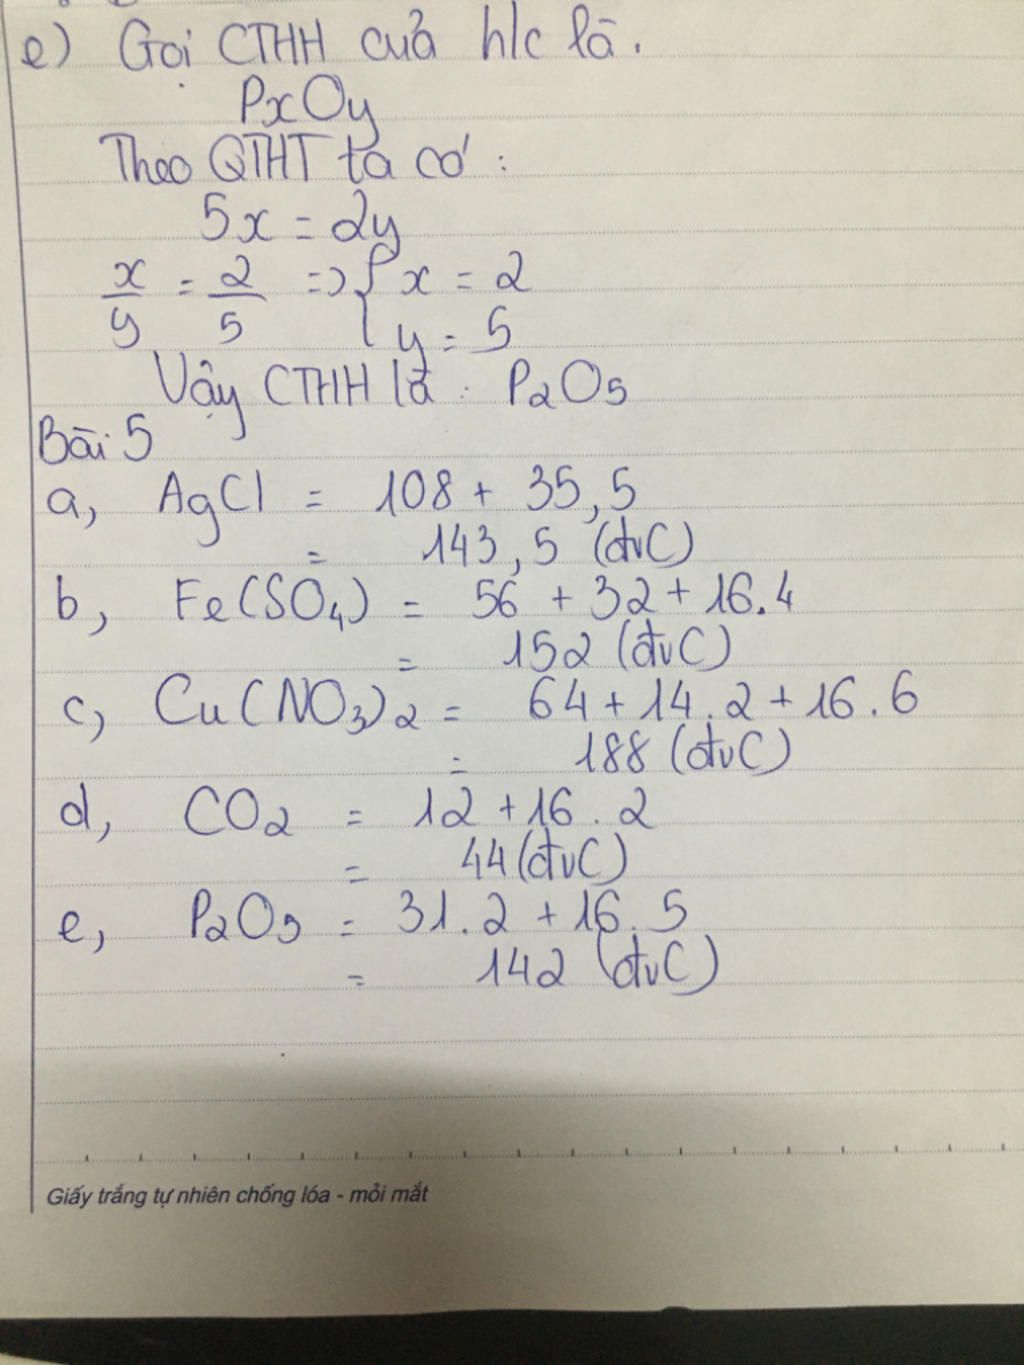 e) Gọi CTHH của h/c là.
PxOy
Theo QTHT ta có :
5x = 2y
x/y = 2/5 => { x = 2
y = 5
Vậy CTHH là : P2O5
Bài 5
a, AgCl = 108 + 35,5
= 143,5 (đvC)
b, Fe(SO4) = 56 + 32 + 16.4
= 152 (đvC)
c, Cu(NO3)2 = 64 + 14.2 + 16.6
= 188 (đvC)
d, CO2 = 12 + 16.2
= 44 (đvC)
e, P2O5 = 31.2 + 16.5
= 142 (đvC)
Giấy trắng tự nhiên chống lóa - mỏi mắt